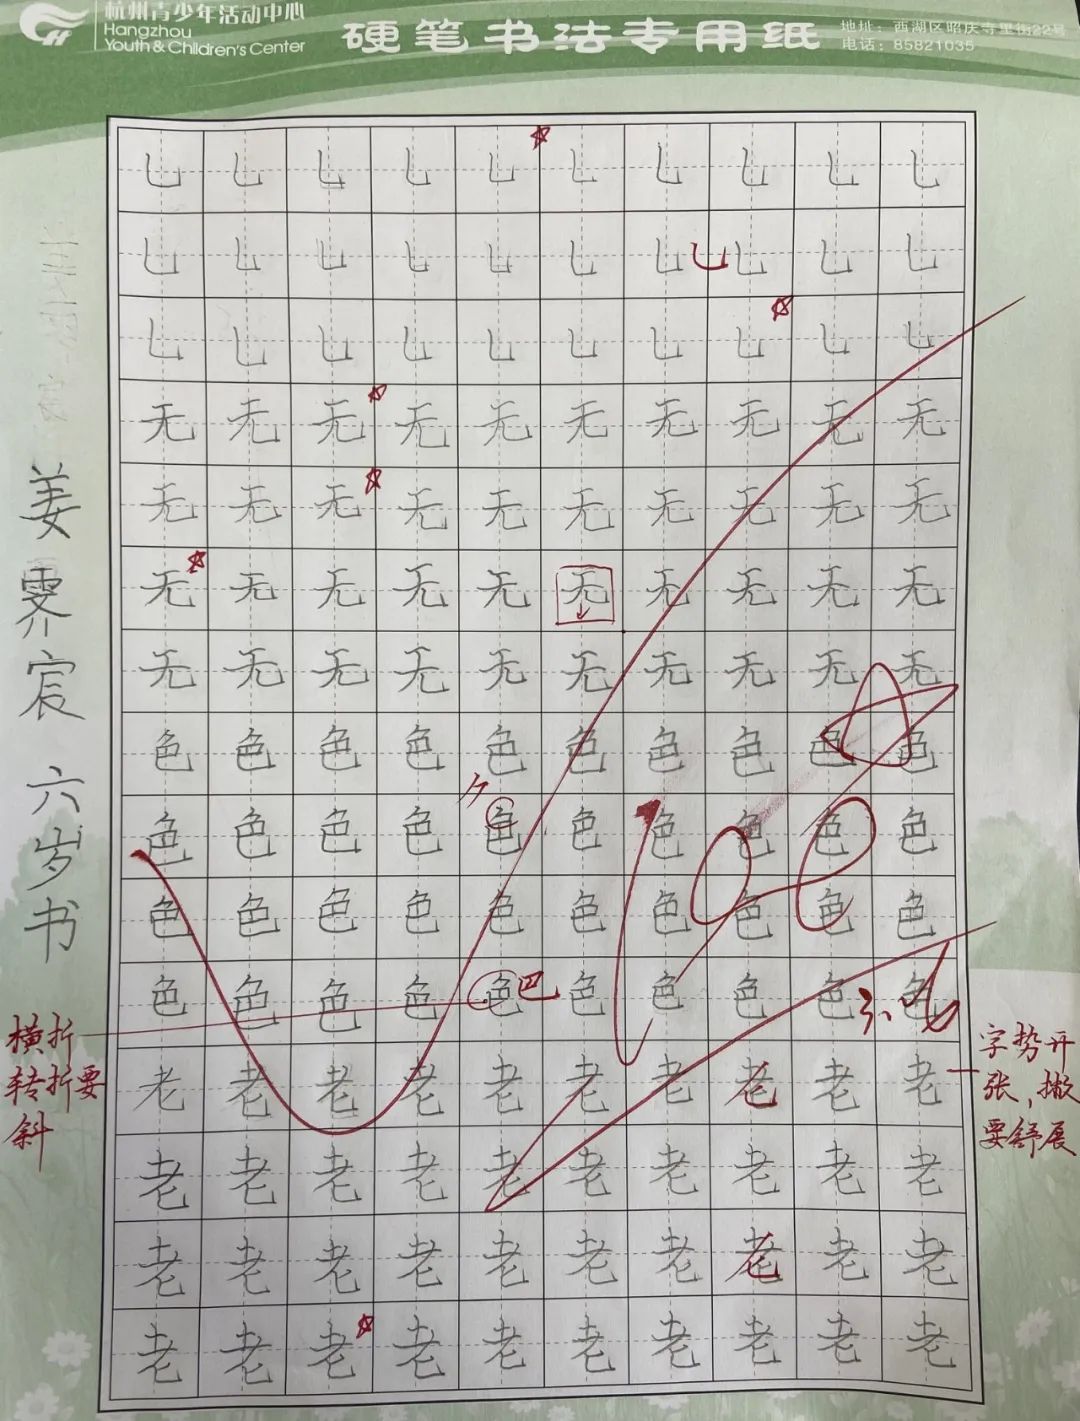 杭州青少年活动中心
Hangzhou
Youth & Children's Center
硬笔书法专用纸
地址：西湖区昭庆寺里街22号
电话：85821035
乚乚乚乚乚乚乚乚乚乚
乚乚乚乚乚乚乚乚乚乚
乚乚乚乚乚乚乚乚乚乚
无无无无无无无无无无
无无无无无无无无无无
无无无无无无无无无无
无无无无无无无无无无
色色色色色色色色色色
色色色色色色色色色色
色色色色色色色色色色
色色色色色色色色色色
老老老老老老老老老老
老老老老老老老老老老
老老老老老老老老老老
老老老老老老老老老老
姜霁宸 六岁书
横折
转折要
斜
巴
字势开
张，撇
要舒展